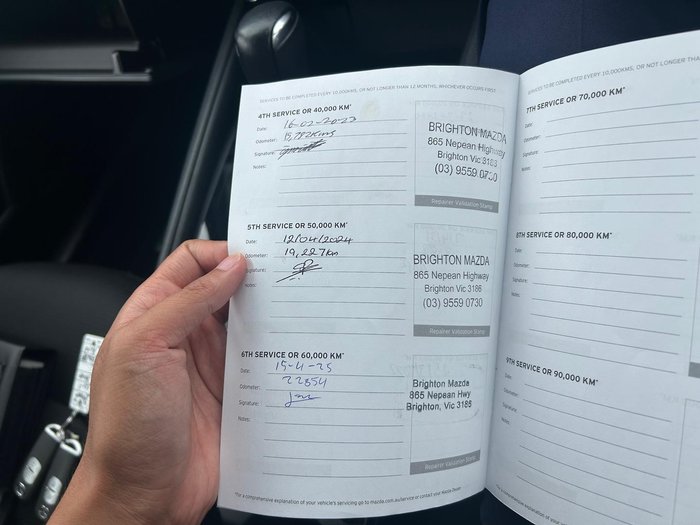 SERVICES TO BE COMPLETED EVERY 10,000KMS, OR NOT LONGER THAN 12 MONTHS, WHICHEVER OCCURS FIRST
4TH SERVICE OR 40,000 KM*
Date: 16-02-2023
Odometer: 15,782Kms
Signature:
Notes:
BRIGHTON MAZDA
865 Nepean Highway
Brighton Vic 3186
(03) 9559 0730
Repairer Validation Stamp
5TH SERVICE OR 50,000 KM*
Date: 12/04/2024
Odometer: 19,227km
Signature:
Notes:
BRIGHTON MAZDA
865 Nepean Highway
Brighton Vic 3186
(03) 9559 0730
Repairer Validation Stamp
6TH SERVICE OR 60,000 KM*
Date: 15-4-25
Odometer: 22854
Signature:
Notes:
Brighton Mazda
865 Nepean Hwy
Brighton, Vic 3186
Repairer Validation Stamp
*For a comprehensive explanation of your vehicle's servicing go to mazda.com.au/service or contact your Mazda Dealer.
SERVICES TO BE COMPLETED EVERY 10,000KMS, OR NOT LONGER THAN
7TH SERVICE OR 70,000 KM*
Date:
Odometer:
Signature:
Notes:
8TH SERVICE OR 80,000 KM*
Date:
Odometer:
Signature:
Notes:
9TH SERVICE OR 90,000 KM*
Date:
Odometer:
Signature:
Notes:
*For a comprehensive explanation of your